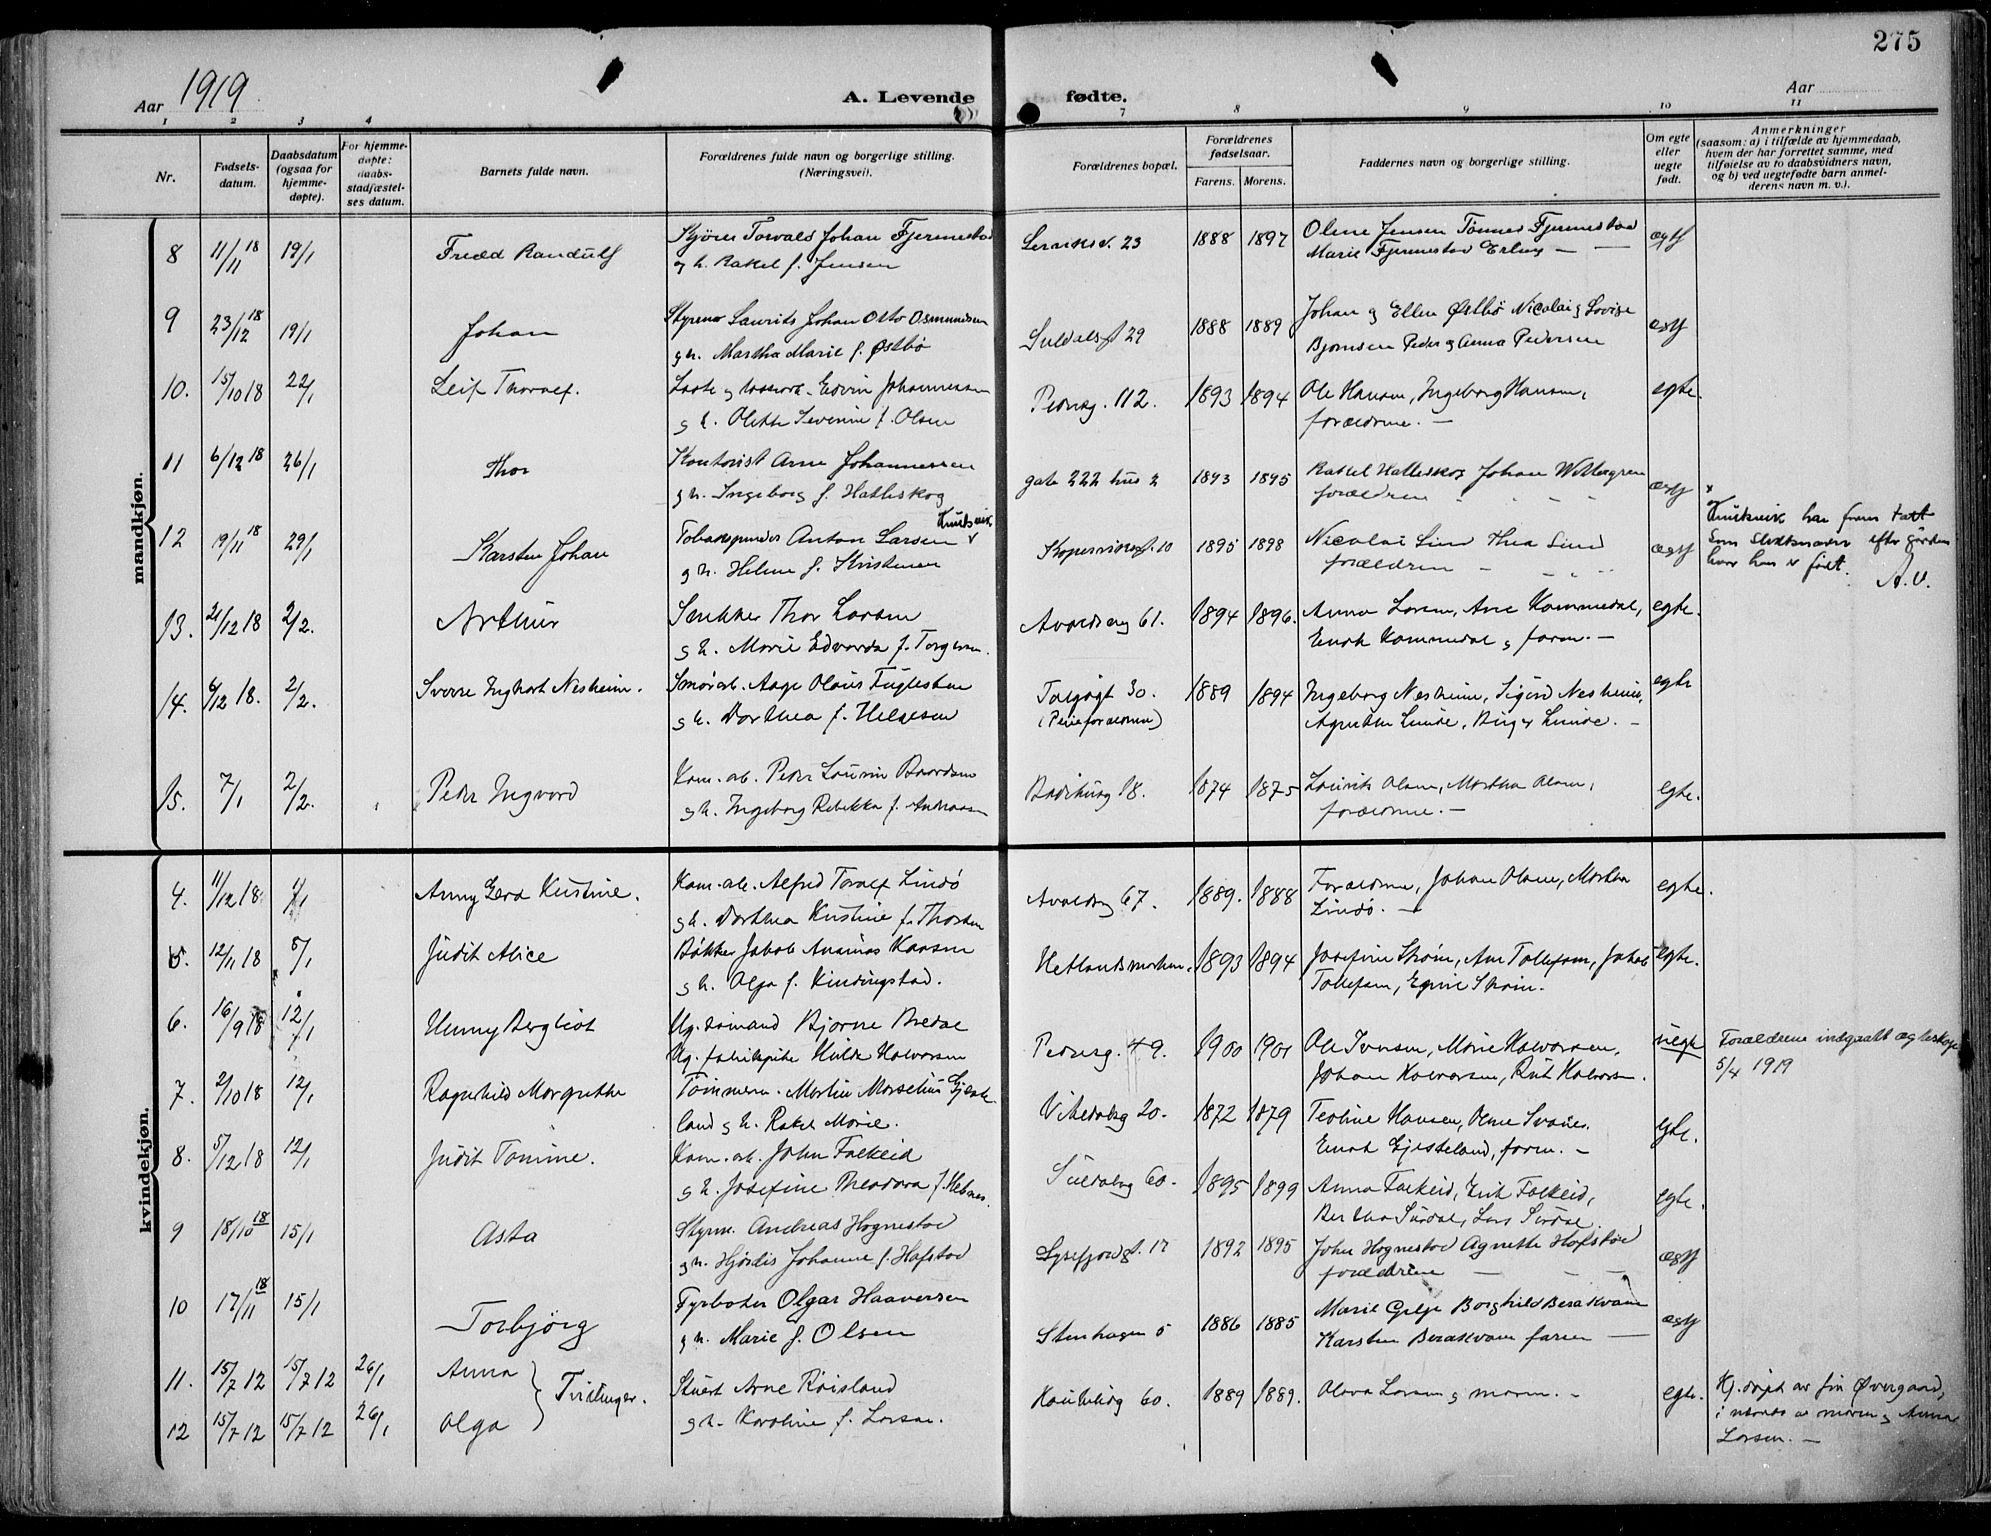 275
Aar 1919
A. Levende fødte.
Aar
1 2 3 4 7 8 9 10 11
Nr.
Fødsels-
datum.
Daabsdatum
(ogsaa for
hjemme-
døpte).
For hjemme-
døpte:
daabs-
stadfæstel-
ses datum.
Barnets fulde navn.
Forældrenes fulde navn og borgerlige stilling.
(Næringsvei).
Forældrenes bopæl.
Forældrenes
fødselsaar.
Farens. Morens.
Faddernes navn og borgerlige stilling.
Om egte
eller
uegte
født.
Anmerkninger
(saasom: a) i tilfælde av hjemmedaab,
hvem der har forrettet samme, med
tilføielse av to daabsvidners navn,
og b) ved uegtefødte barn anmel-
derens navn m. v.).
mandkjøn.
8 11/11 18 19/1 Fredd Randulf Torvald Johan Fjermestad 23 1888 1897 Olene Jensen Tønnes Fjermestad ægt
g h. Rakel f. Jensen Marie Fjermestad Erling —
9 23/12 18 19/1 Johan Styrmand Laurits Johan Otto Osmundsen Suldalsgt 29 1888 1889 Johan og Ellen Østbø Nicolai g Lovise ægt
g h. Martha Marie f. Østbø Bjørnsen Peder g Anna Pedersen
10. 15/10 18 22/1 Leif Thoralf. Edvin Johannessen Pedersg. 112. 1893 1894 Ole Hansen, Ingeborg Hansen, egte.
g h. Olette Severine f. Olsen forældrene. —
11 6/12 18 26/1 Thor Kontorist Arne Johannessen gate 222 hus 2 1893 1895 Rakel Hatleskog Johan Wettergren ægt
g h. Ingeborg f. Hatleskog forældrene
12 19/11 18 29/1 Karsten Johan Anton Larsen x Knutsvik 10 1895 1898 Nicolai Lund Thea Lund ægt
g h. Helene f. Kristensen forældrene
x Knutsvik har faren tatt
som slektsnavn efter gården
hvor han er født.
A. V.
13. 21/12 18 2/2. Arthur Snekker Thor Larsen Avaldsng 61. 1894 1896. Anna Larsen, Ane Kommedal, egte.
g h. Marie Edvarda f. Torgersen. Enok Kommedal g faren. —
14. 6/12 18. 2/2. Sverre Inghart Nesheim. Aage Olaus Fuglestein Talgøgt 30. 1889 1894 Ingeborg Nesheim, Sigurd Nesheim, egte
g h. Dorthea f. Helgesen (Pleieforældrene) Agnethe Lunde, Birger Lunde. —
15. 7/1 2/2. Peder Ingvard Kom. arb. Peder Laurin Baardsen 18. 1874 1875 Laurits Olsen, Martha Olsen, egte.
g h. Ingeborg Rebekka f. Andreasen forældrene. —
kvindekjøn.
4. 11/12 18 1/1 Anny Gera Kristine. Kom. arb. Alfred Toralf Lindø Avaldsng 67. 1889. 1888 Forældrene, Johan Olsen, Martha egte.
g h. Dorthea Kristine f. Thorsen Lindø. —
5. 12/11 18 5/1 Judit Alice Bakker Jakob Ananias Kaasen Hetlandsmarken. 1893 1894 Josefine Strøm, Ane Tollefsen, Jakob egte.
g h. Olga f. Kindingstad. Tollefsen, Egine Strøm.
6. 16/9 18 12/1 Henny Bergliot Ug. sømand Bjarne Bredal Pedersg. 49. 1900 1901 Ole Iversen, Marie Halvorsen, uegte
Ug. fabrikpike Hulda Halvorsen Johan Halvorsen, Rut Halvorsen.
Forældrene indgaatt egteskap
5/4 1919
7. 2/10 18 12/1 Ragnhild Margrethe Tømmerm. Martin Marselius Gjeste- Vikedalsg 20. 1872 1879 Teoline Hansen, Olene Svanes. egte.
land g h. Rakel Marie. Enok Gjesteland, faren. —
8. 5/12 18 12/1 Judit Tomine. Kom. arb. John Falkeid Suldalsg 60. 1895 1899 Anna Falkeid, Erik Falkeid, egte.
g h. Josefine Theodora f. Helsnes. Bertha Surdal, Lars Surdal.
9 18/10 18 15/1 Asta Styrm. Andreas Hognestad Lysefjordgt. 17 1892 1895 John Hognestad Agnette Hafstad ægt
g h. Hjørdis Johanne f. Hafstad forældrene —
10 17/11 18 15/1 Torbjørg Fyrbøter Olgar Haaversen Stenhagen 5 1886 1885 Marie Gilje Borghild Berakvam ægt
g h. Marie f. Olsen Karsten Berakvam faren —
11. 15/7 12 15/7 12 26/1 Anna } Tvillinger. Stuert Arne Røisland 60. 1889 1889. Olava Larsen g moren. — egte.
12 15/7 12 15/7 12 26/1 Olga g h. Karoline f. Larsen.
Hj. døpt av frn Øvergaard,
i nærvær av moren g Anna
Larsen. —